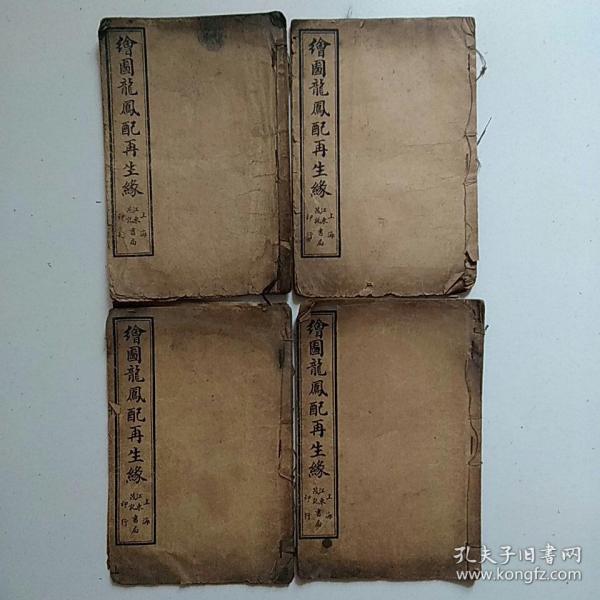 繪圖龍鳳配再生緣
上海
江東茂記書局
印
繪圖龍鳳配再生緣
上海
江東茂記書局
印行
繪圖龍鳳配再生緣
上海
江東茂記書局
印行
繪圖龍鳳配再生緣
上海
江東茂記書局
印行
孔夫子旧书网
www.kongfz.com